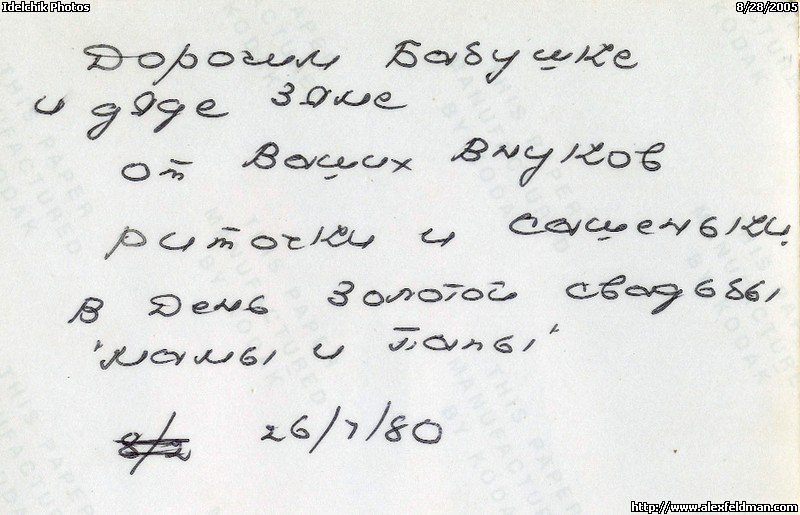 Idelchik Photos
8/28/2005
Дорогим Бабушке
и дяде Зяме
от Ваших Внуков
Риточки и Сашеньки
В День Золотой свадьбы
'мамы и папы'
8/2 26/7/80
THIS PAPER
MANUFACTURED
BY KODAK
http://www.alexfeldman.com